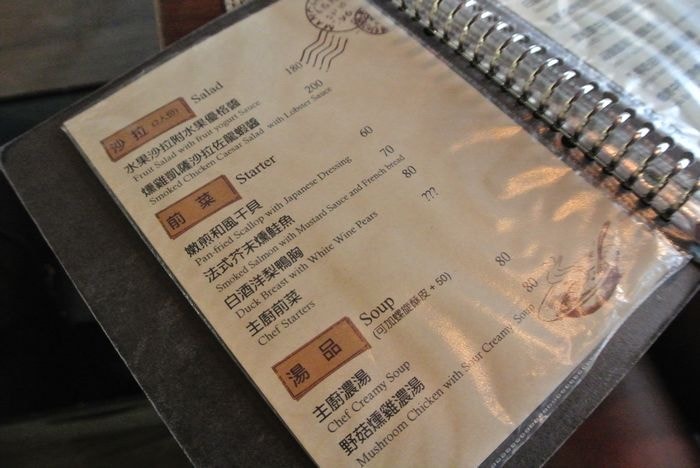 沙拉(2人份) Salad
水果沙拉附水果優格醬 180
Fruit Salad with fruit yogurt Sauce
燻雞凱薩沙拉佐龍蝦醬 200
Smoked Chicken Caesar Salad with Lobster Sauce
前菜 Starter
嫩煎和風干貝 60
Pan-fried Scallop with Japanese Dressing
法式芥末燻鮭魚 70
Smoked Salmon with Mustard Sauce and French bread
白酒洋梨鴨胸 80
Duck Breast with White Wine Pears
主廚前菜 ???
Chef Starters
湯品 Soup
(可加螺旋酥皮+50)
主廚濃湯 80
Chef Creamy Soup
野菇燻雞濃湯 80
Mushroom Chicken with Sour Creamy Soup